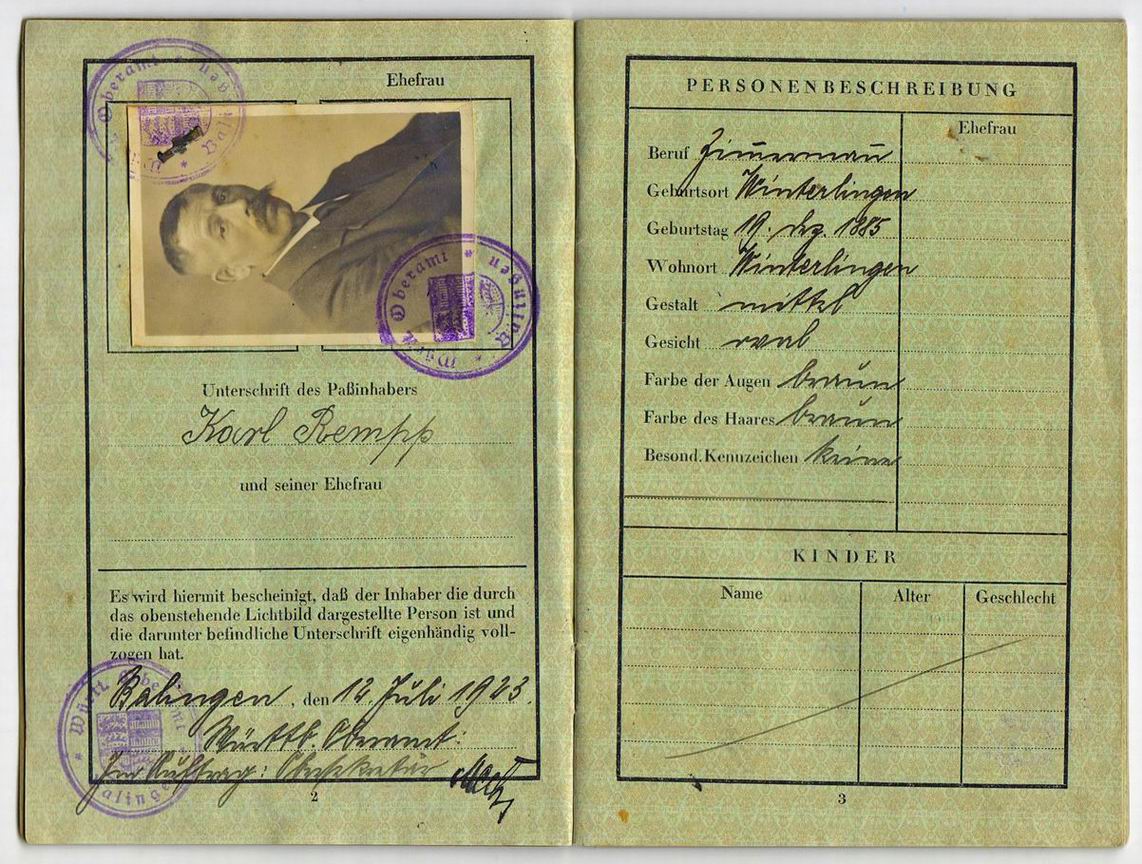 Ehefrau
Württ. Oberamt * Balingen *
Württ. Oberamt * Balingen *
Unterschrift des Paßinhabers
Karl Rempp
und seiner Ehefrau
Es wird hiermit bescheinigt, daß der Inhaber die durch
das obenstehende Lichtbild dargestellte Person ist und
die darunter befindliche Unterschrift eigenhändig voll-
zogen hat.
Balingen, den 12. Juli 1923.
Württb. Oberamt:
Im Auftrag: Obersekretär
Württ. Oberamt * Balingen *
2
PERSONENBESCHREIBUNG
Ehefrau
Beruf Zimmermann
Geburtsort Winterlingen
Geburtstag 19. Dez. 1885
Wohnort Winterlingen
Gestalt mittel
Gesicht oval
Farbe der Augen braun
Farbe des Haares braun
Besond. Kennzeichen keine
KINDER
Name Alter Geschlecht
3